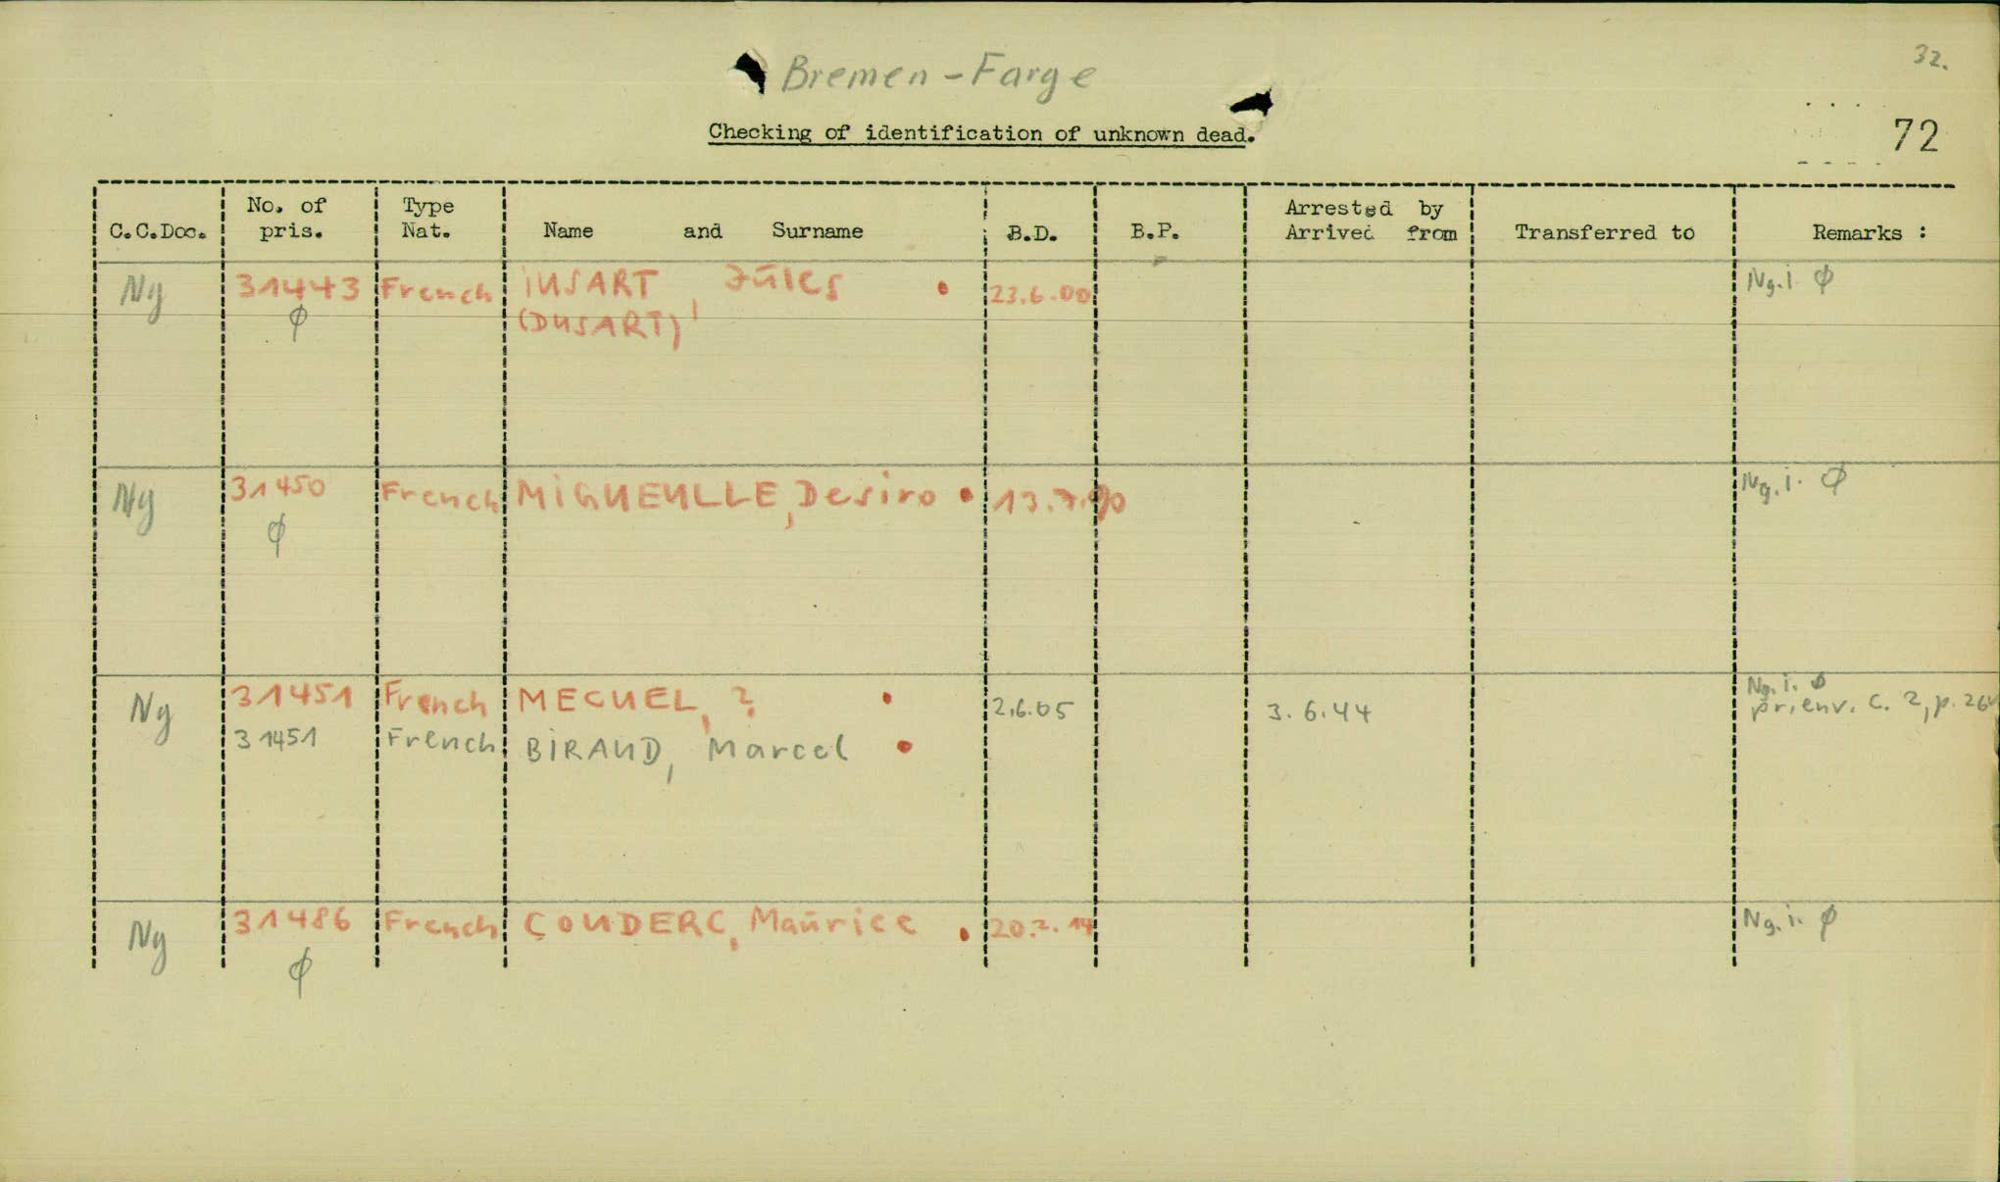 32.
Bremen-Farge
Checking of identification of unknown dead.
72
C.C.Doc. No. of pris. Type Nat. Name and Surname B.D. B.P. Arrested by Arrived from Transferred to Remarks :
Ng 31443 French INSART, Jules 23.6.00 Ng.i. ϕ
ϕ (DUSART)
Ng 31450 French MIGUEULLE, Desiro 13.7.90 Ng.i. ϕ
ϕ
Ng 31451 French MECUEL, ? 2.6.05 3.6.44 Ng.i. ϕ
31451 French BIRAUD, Marcel pr.env. C. 2, p. 26
Ng 31486 French COUDERC, Maurice 20.2.14 Ng.i. ϕ
ϕ